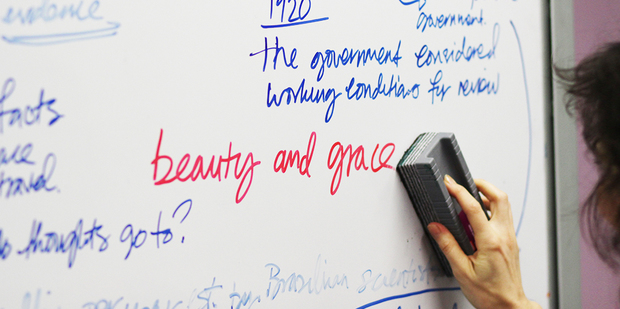 evidence
1920
government.
the government considered
working conditions for review
facts
beauty and grace
travel.
thoughts go to?
by Brazilian scientist